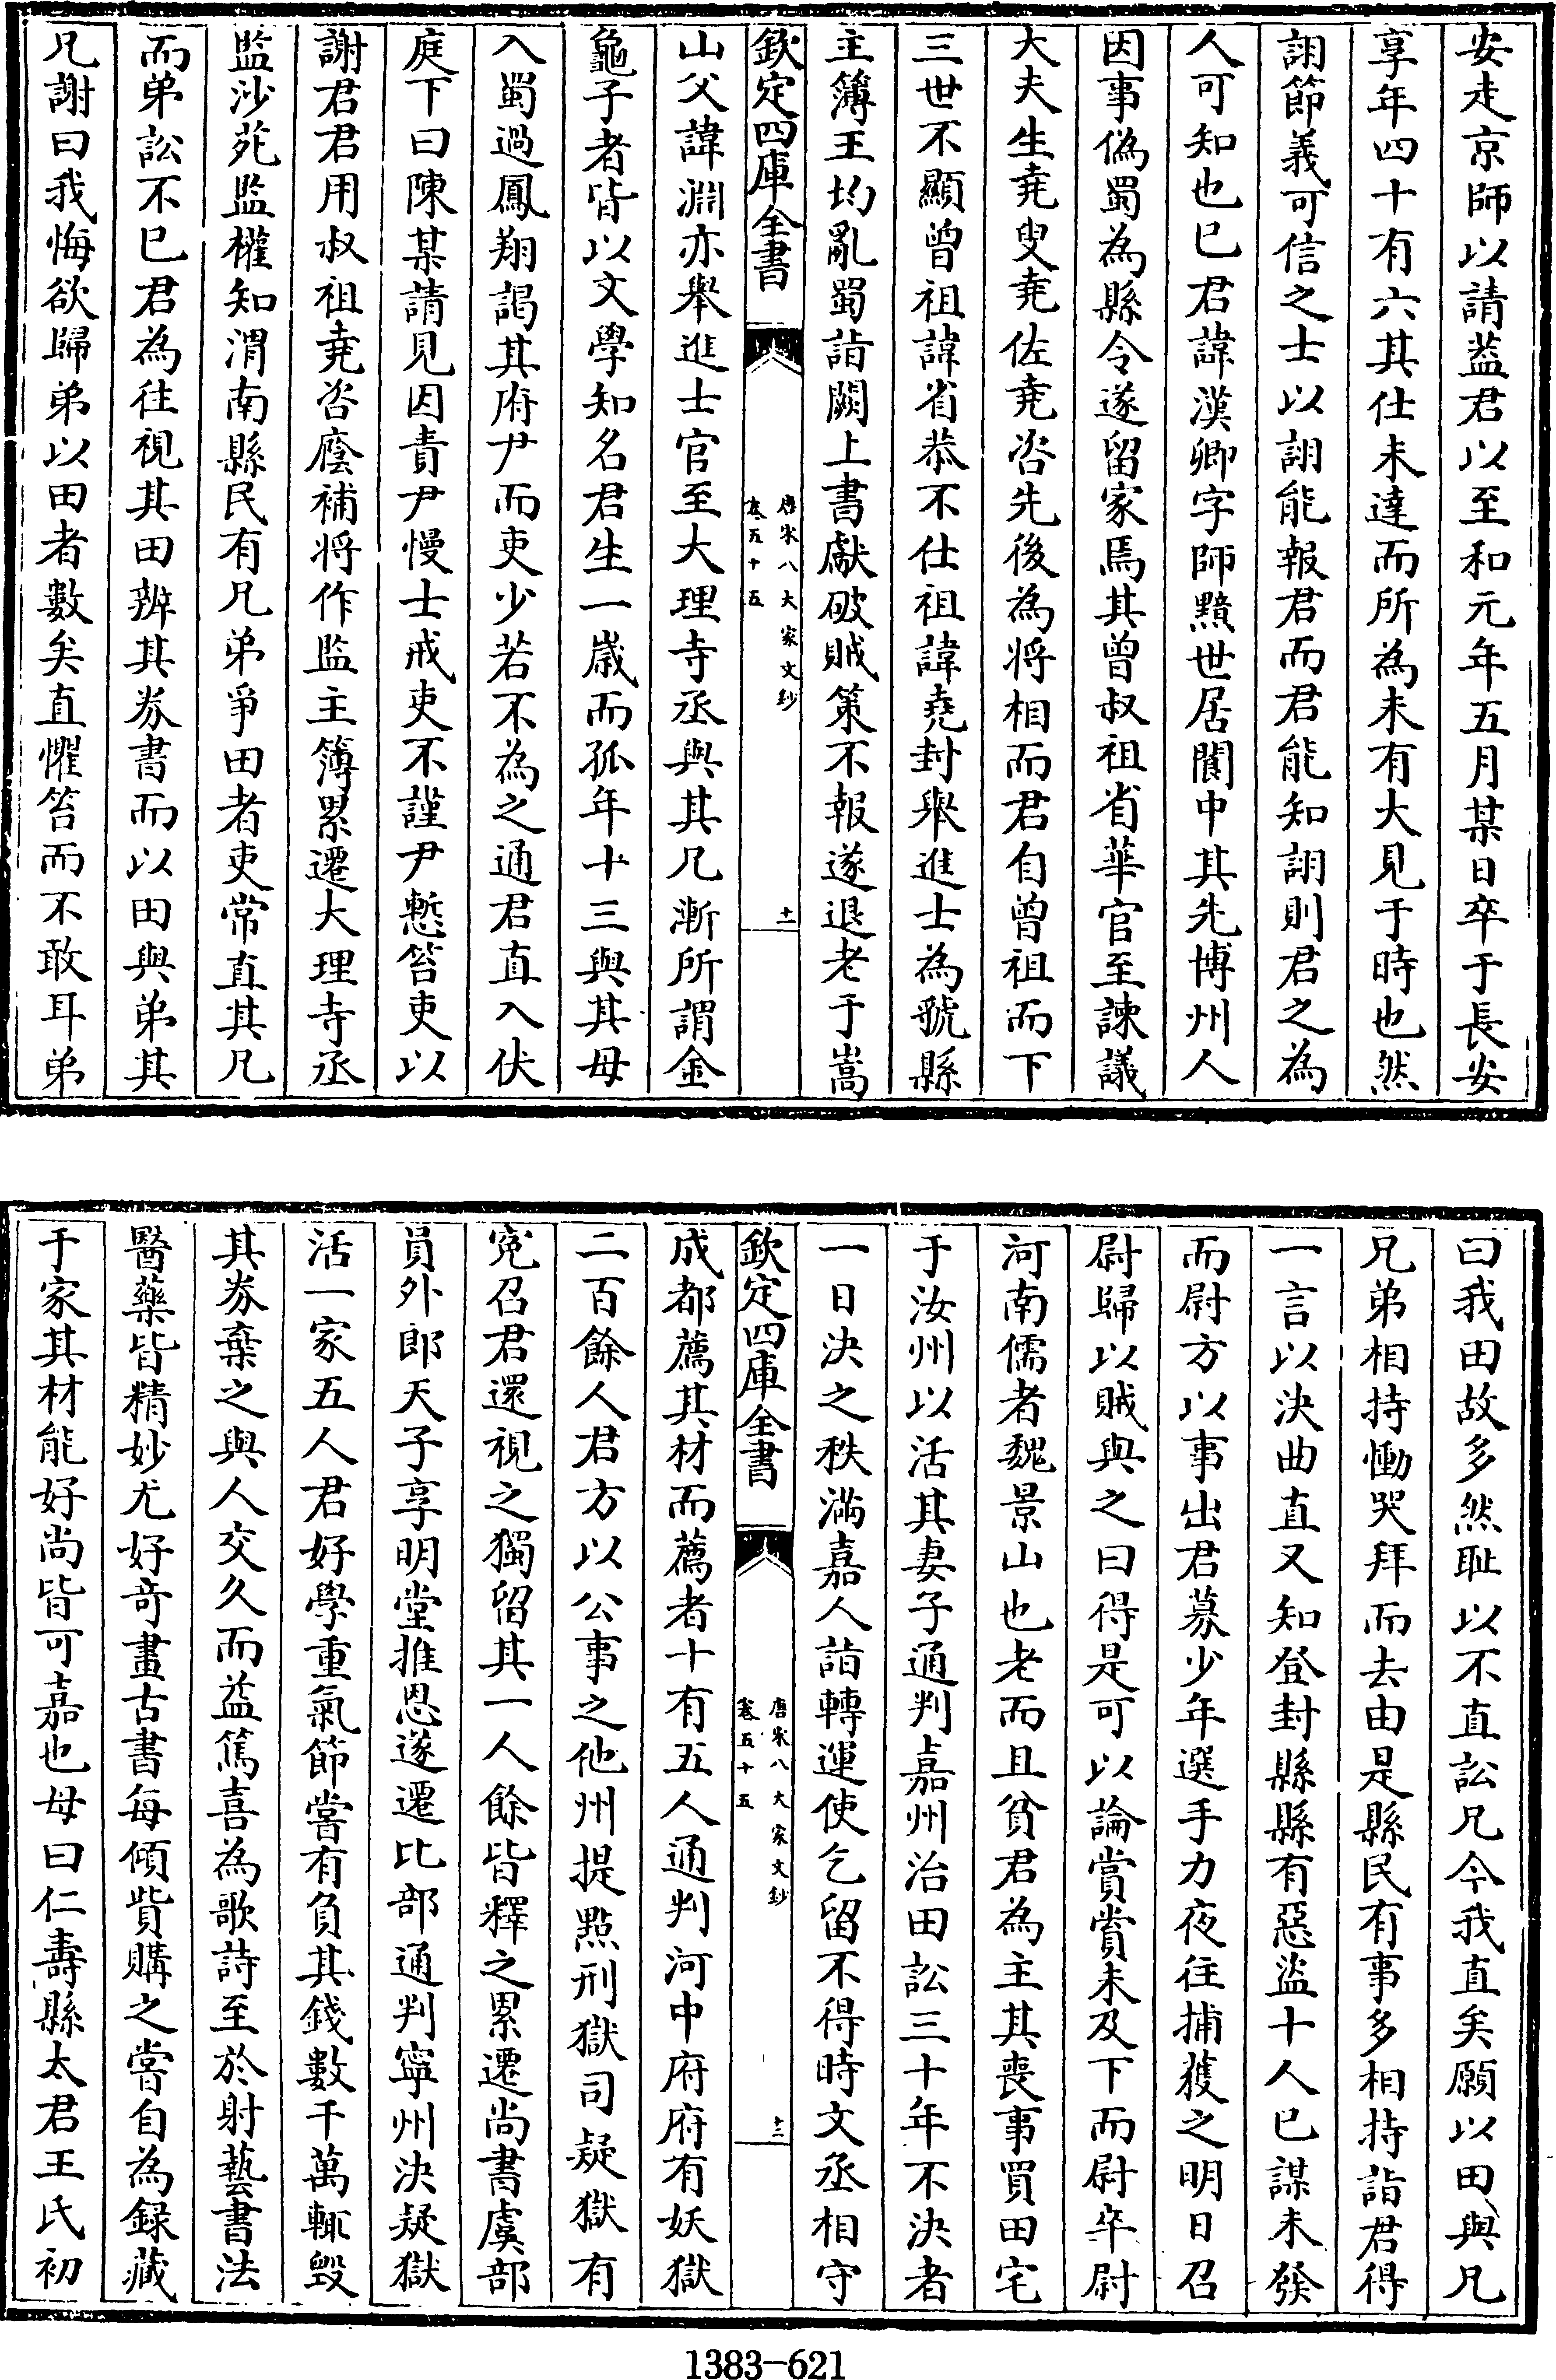 安走京師以請蓋君以至和元年五月某日卒于長安
享年四十有六其仕未達而所為未有大見于時也然
詡節義可信之士以詡能報君而君能知詡則君之為
人可知也巳君諱漢卿字師黯世居閬中其先博州人
因事偽蜀為縣令遂留家焉其曾叔祖省華官至諫議
大夫生堯叟堯佐堯咨先後為將相而君自曾祖而下
三世不顯曾祖諱省恭不仕祖諱堯封舉進士為虢縣
主簿王均亂蜀詣闕上書獻破賊策不報遂退老于嵩
欽定四庫全書
唐宋八大家文鈔
卷五十五
十一
山父諱淵亦舉進士官至大理寺丞與其兄漸所謂金
龜子者皆以文學知名君生一歲而孤年十三與其母
入蜀過鳳翔謁其府尹而吏少若不為之通君直入伏
庭下曰陳某請見因責尹慢士戒吏不謹尹慙笞吏以
謝君君用叔祖堯咨廕補將作監主簿累遷大理寺丞
監沙苑監權知渭南縣民有兄弟爭田者吏常直其兄
而弟訟不已君為往視其田辨其券書而以田與弟其
兄謝曰我悔欲歸弟以田者數矣直懼笞而不敢耳弟
曰我田故多然耻以不直訟兄今我直矣願以田與兄
兄弟相持慟哭拜而去由是縣民有事多相持詣君得
一言以決曲直又知登封縣縣有惡盜十人已謀未發
而尉方以事出君募少年選手力夜往捕獲之明日召
尉歸以賊與之曰得是可以論賞賞未及下而尉卒尉
河南儒者魏景山也老而且貧君為主其喪事買田宅
于汝州以活其妻子通判嘉州治田訟三十年不決者
一日決之秩滿嘉人詣轉運使乞留不得時文丞相守
欽定四庫全書
唐宋八大家文鈔
卷五十五
十二
成都薦其材而薦者十有五人通判河中府府有妖獄
二百餘人君方以公事之他州提點刑獄司疑獄有
寃召君還視之獨留其一人餘皆釋之累遷尚書虞部
員外郎天子享明堂推恩遂遷比部通判寧州決疑獄
活一家五人君好學重氣節嘗有負其錢數千萬輒毀
其券棄之與人交久而益篤喜為歌詩至於射藝書法
醫藥皆精妙尤好竒畫古書每傾貲購之嘗自為録藏
于家其材能好尚皆可嘉也母曰仁壽縣太君王氏初
1383-621